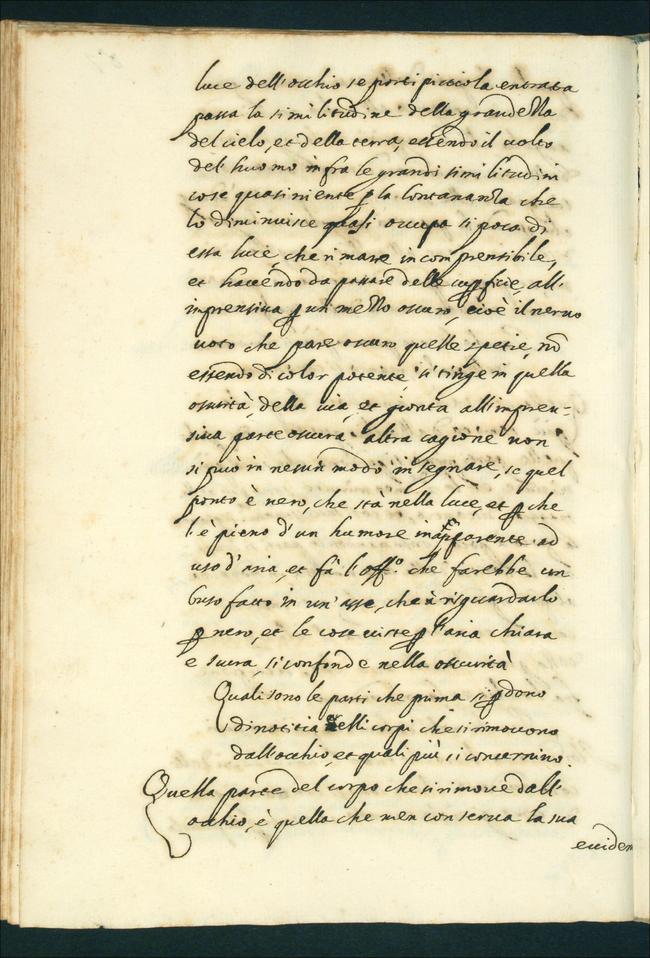 luce dell'occhio se porti picciola entrata
passa la similitudine della grandezza
del cielo, et della terra, essendo il volto
del' huomo infra le grandi similitudini
cose quasi niente p la lontananza che
lo diminuisce quasi occupa si poca di
essa luce, che rimane incomprensibile,
et havendo da passare delle supficie, all'
imprensiva p un mezzo oscuro, cioè il nervo
voto che pare oscuro quelle spetie, nō
essendo di color potente, si tinge in quella
oscurità, della via, et gionta all'impren-
siva parte oscura altra cagione non
si può in nesun modo insegnare, se quel
ponto è nero, che stà nella luce, et p che
l'è pieno d'un humore apparente ad
uso d'aria, et fà l'offo. che farebbe un
buso fatto in un'asse, che à risguardarlo
p nero, et le cose viste p l'aria chiara
e scura, si confonde nella oscurità
Quali sono le parti che prima si pdono
di notitia elli corpi che si rimovono
dall'occhio, et quali più si conservino.
Quella parte del corpo che si rimove dall'
occhio, è quella che men conserva la sua
eviden